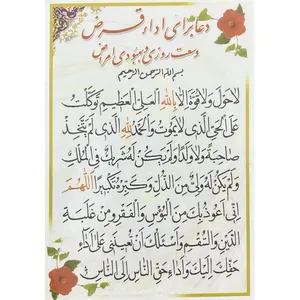 دعا برای ادار قرض
وسعت روزی و بهبودی امراض
بسم الله الرحمن الرحیم
لَاحَوْلَ وَلَاقُوَّةَ اِلَّا بِاللهِ الْعَلِیِّ الْعَظِیمِ تَوَکَّلْتُ
عَلَی الْحَیِّ الَّذی لَایَمُوتُ وَالْحَمْدُ لِلهِ الَّذی لَمْ یَتَّخِذْ
صَاحِبَةً وَلَاوَلَدًا وَلَمْ یَکُنْ لَهُ شَرِیكٌ فِی الْمُلْكِ
وَلَمْ یَکُنْ لَهُ وَلِیٌّ مِنَ الذُّلِّ وَکَبِّرْهُ تَکْبِیرًا اَللّٰهُمَّ
اِنّی اَعُوذُ بِكَ مِنَ الْبُؤْسِ وَالْفَقْرِ وَمِنْ غَلَبَةِ
الدَّیْنِ وَالسُّقْمِ وَاَسْئَلُكَ اَنْ تُعینَنی عَلیٰ اَدٰاءِ
حَقِّكَ اِلَیْكَ وَاَدٰاءِ حَقِّ النّٰاسِ اِلَی النّٰاسِ